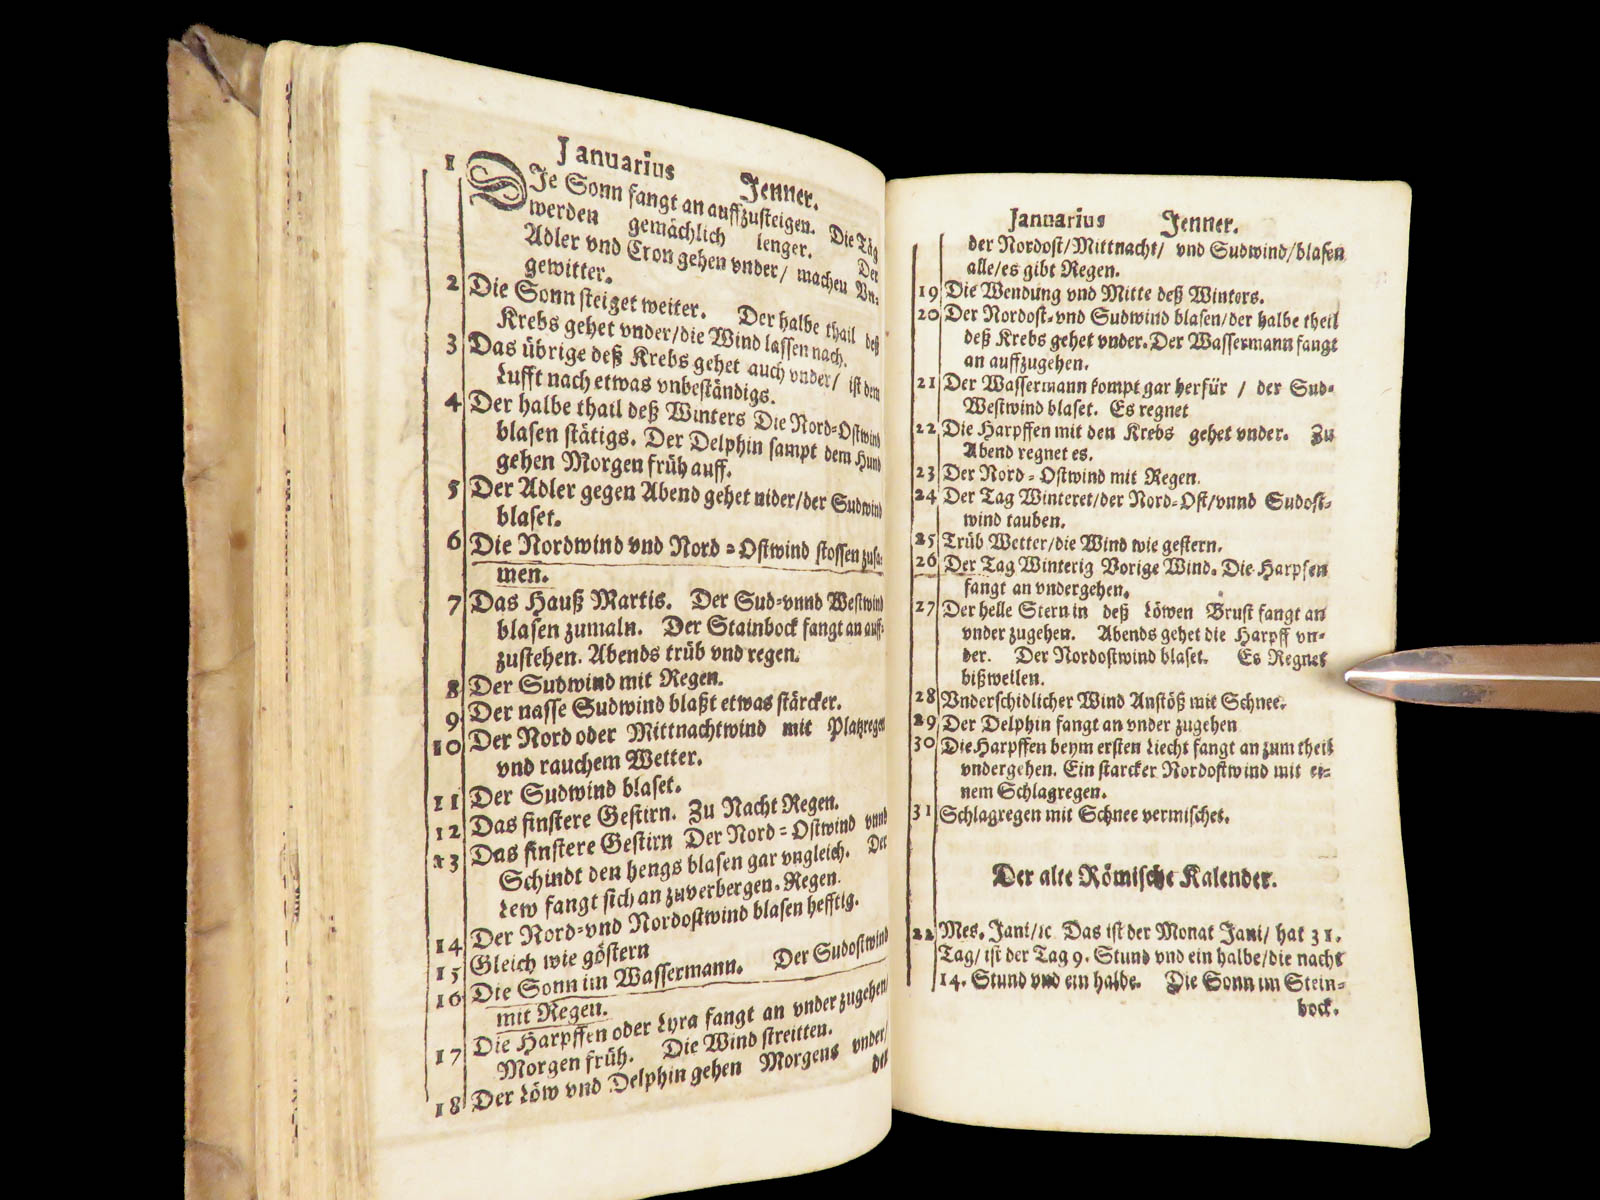 Januarius Jenner.
1 DJe Sonn fangt an auffzusteigen. Die Täg
werden gemächlich lenger. Der
Adler vnd Cron gehen vnder/ machen Vn-
gewitter.
2 Die Sonn steiget weiter. Der halbe thail deß
Krebs gehet vnder/die Wind lassen nach.
3 Das übrige deß Krebs gehet auch vnder/ ist dem
Lufft nach etwas vnbeständigs.
4 Der halbe thail deß Winters Die Nord-Ostwind
blasen stätigs. Der Delphin sampt dem Hund
gehen Morgen früh auff.
5 Der Adler gegen Abend gehet nider/der Sudwind
blaset.
6 Die Nordwind vnd Nord-Ostwind stossen zusa-
men.
7 Das Hauß Martis. Der Sud-vnnd Westwind
blasen zumaln. Der Stainbock fangt an auff-
zustehen. Abends trüb vnd regen.
8 Der Sudwind mit Regen.
9 Der nasse Sudwind blaßt etwas stärcker.
10 Der Nord oder Mittnachtwind mit Platzregen
vnd rauchem Wetter.
11 Der Sudwind blaset.
12 Das finstere Gestirn. Zu Nacht Regen.
13 Das finstere Gestirn Der Nord-Ostwind vnnd
Schindt den hengs blasen gar vngleich. Der
Lew fangt sich an zuverbergen. Regen.
14 Der Nord-vnd Nordostwind blasen hefftig.
15 Gleich wie göstern
16 Die Sonn im Wassermann. Der Sudostwind
mit Regen.
17 Die Harpffen oder Lyra fangt an vnder zugehen/
Morgen früh. Die Wind streitten.
18 Der Löw vnd Delphin gehen Morgens vnder/
der
Januarius Jenner.
der Nordost/Mittnacht/ vnd Sudwind/blasen
alle/es gibt Regen.
19 Die Wendung vnd Mitte deß Winters.
20 Der Nordost-vnd Sudwind blasen/der halbe theil
deß Krebs gehet vnder. Der Wassermann fangt
an auffzugehen.
21 Der Wassermann kompt gar herfür / der Sud-
Westwind blaset. Es regnet
22 Die Harpffen mit den Krebs gehet vnder. Zu
Abend regnet es.
23 Der Nord-Ostwind mit Regen.
24 Der Tag Winteret/der Nord-Ost/vnnd Sudost-
wind tauben.
25 Trüb Wetter/die Wind wie gestern.
26 Der Tag Winterig Vorige Wind. Die Harpfen
fangt an vndergehen.
27 Der helle Stern in deß Löwen Brust fangt an
vnder zugehen. Abends gehet die Harpff vn-
der. Der Nordostwind blaset. Es Regnet
bißweilen.
28 Vnderschidlicher Wind Anstöß mit Schnee.
29 Der Delphin fangt an vnder zugehen
30 Die Harpffen beym ersten Liecht fangt an zum theil
vndergehen. Ein starcker Nordostwind mit ei-
nem Schlagregen.
31 Schlagregen mit Schnee vermischet.
Der alte Römische Kalender.
22 Mes. Jani/ꝛc Das ist der Monat Jani/ hat 31.
Tag/ ist der Tag 9. Stund vnd ein halbe/die nacht
14. Stund vnd ein halbe. Die Sonn im Stein-
bock.